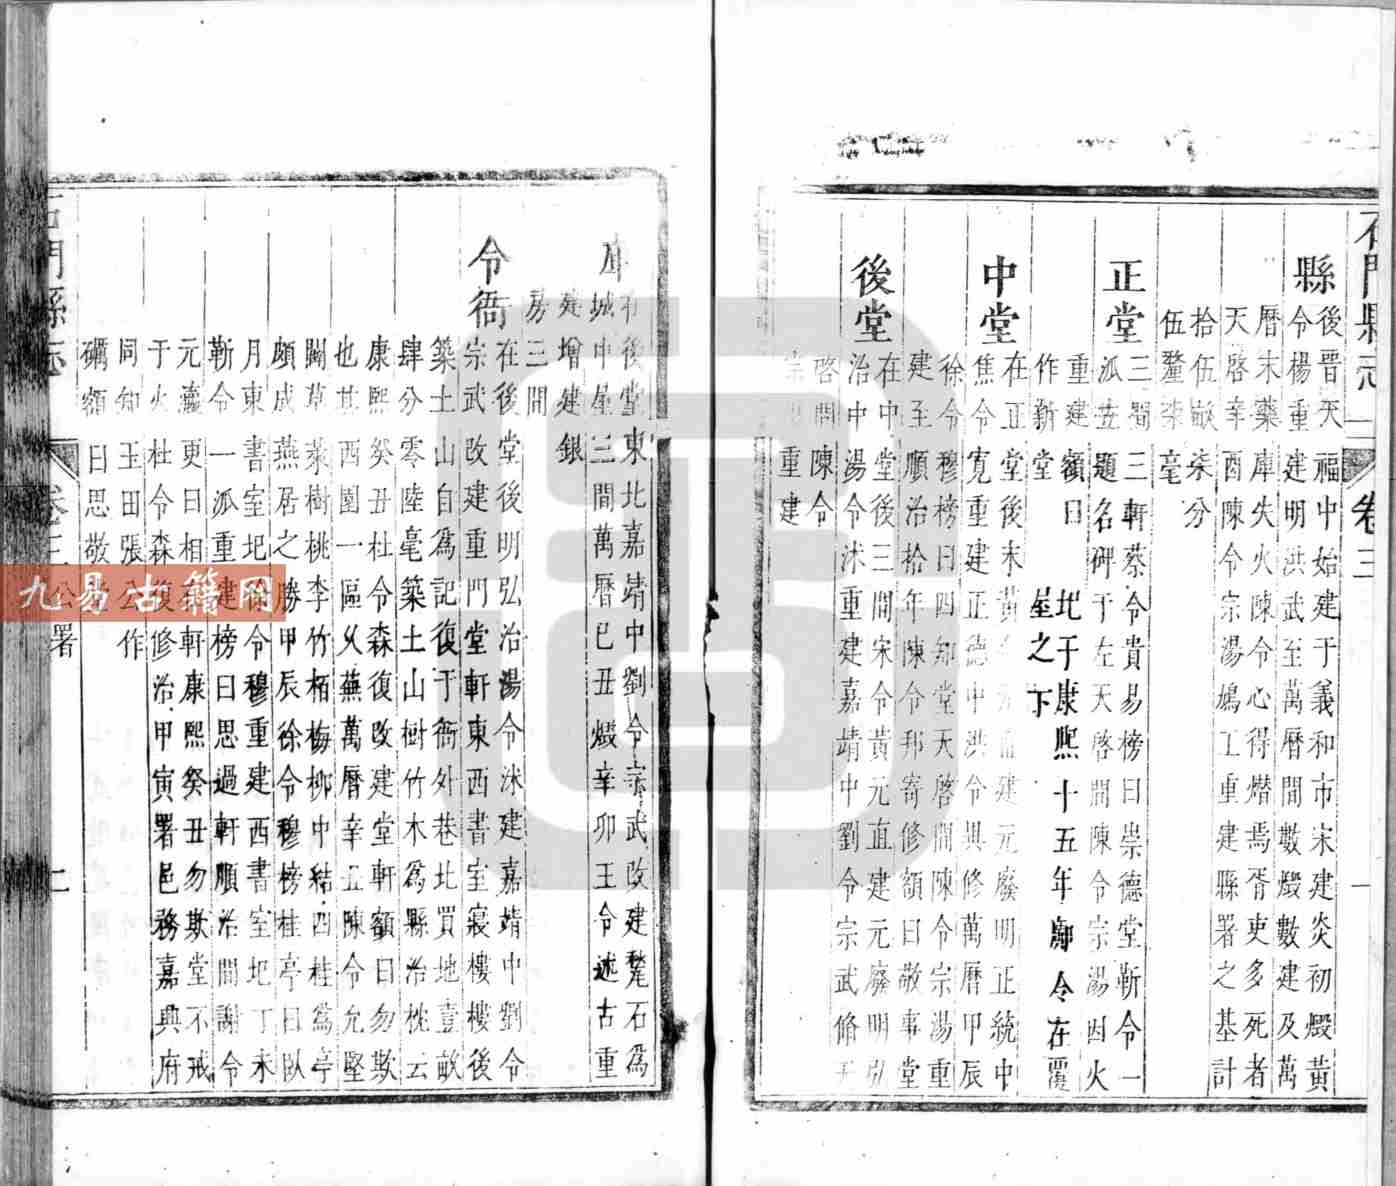 石門縣志
卷三
一
縣
後晉天福中始建于義和市宋建炎初燬黃
令楊重建明洪武至萬曆間數燬數建及萬
曆末藥庫失火陳令心得熸焉胥吏多死者
天啓辛酉陳令宗湯鳩工重建縣署之基計
拾伍畝柒分
伍釐柒毫
正堂
三間三軒蔡令貴易榜曰崇德堂靳令一
派立題名碑于左天啓間陳令宗湯因火
重建額曰
作新堂
圮于康熙十五年鄺令在覆
屋之下
中堂
在正堂後宋黃令元直建元廢明正統中
焦令寬重建正德中洪令異修萬曆甲辰
徐令穆榜曰四知堂天啓間陳令宗湯重
建至順治拾年陳令邦寄修額曰敬事堂
後堂
在中堂後三間宋令黃元直建元廢明弘
治中湯令沐重建嘉靖中劉令宗武脩天
啓間陳令
重建
庫
在後堂東北嘉靖中劉令宗武改建甃石爲
城中屋三間萬曆己丑燬辛卯王令述古重
建增建銀
房三間
令衙
在後堂後明弘治湯令沐建嘉靖中劉令
宗武改建重門堂軒東西書室寢樓樓後
築土山自爲記復于衙外巷北買地壹畝
肆分零陸毫築土山樹竹木爲縣治枕云
康熙癸丑杜令森復改建堂軒額曰勿欺
也其西園一區久蕪萬曆辛丑陳令允堅
闢草萊樹桃李竹栢梅柳中結四桂爲亭
頗成燕居之勝甲辰徐令穆榜桂亭曰臥
月東書室圮徐令穆重建西書室圮丁未
靳令一派重建榜曰思過軒順治間謝令
元瀛更曰相軒康熙癸丑勿欺堂不戒
于火杜令森復修治甲寅署邑務嘉興府
同知玉田張公作
礪額曰思敬
石門縣志
卷三 公署
二
九易古籍网